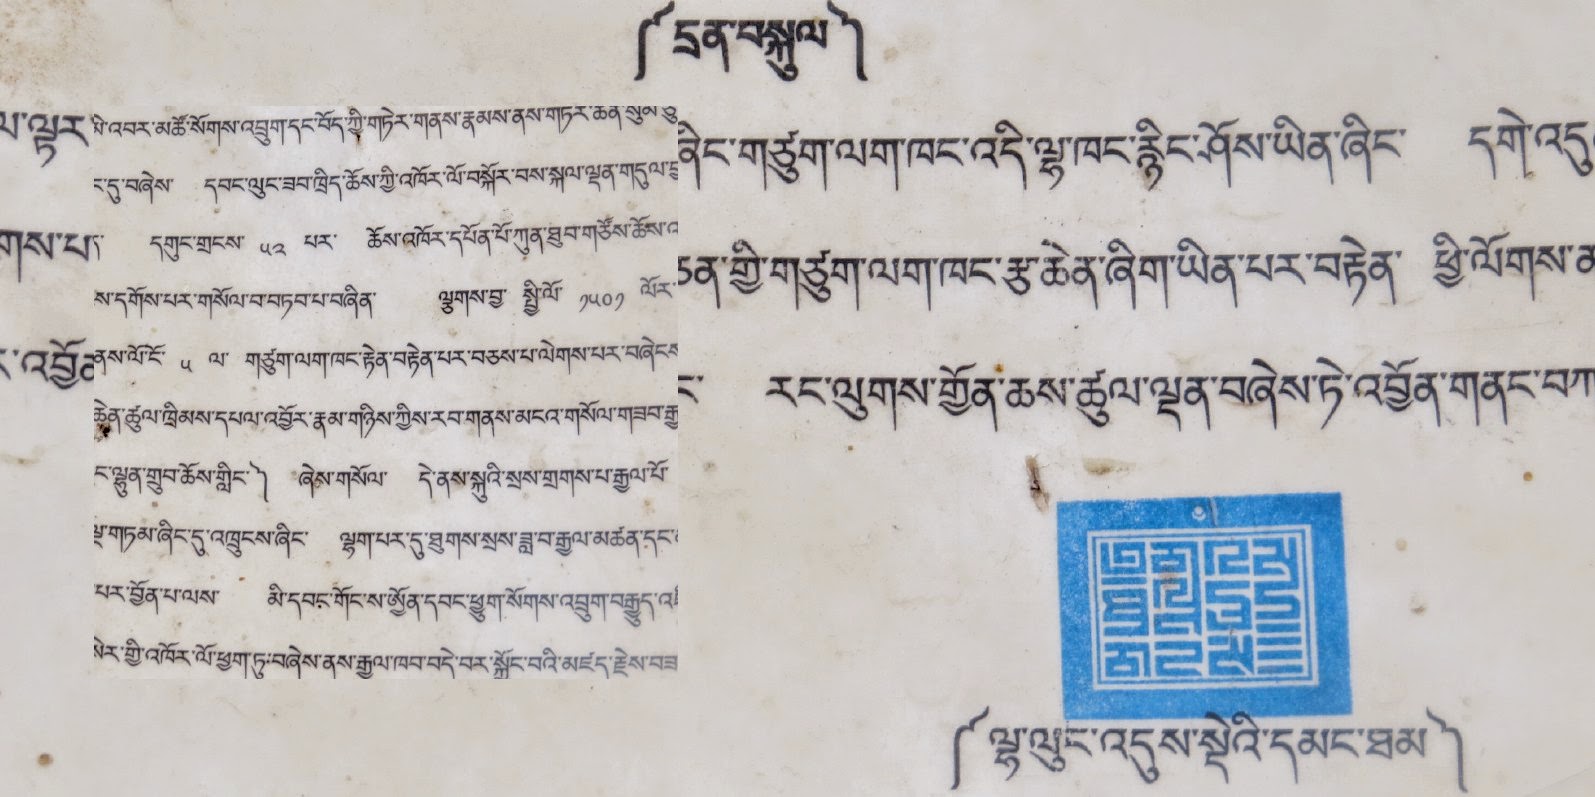 ༼ དྲན་བསྐུལ ༽
ལྟར
ནིང་གཙུག་ལག་ཁང་འདི་ལྷ་ཁང་རྙིང་ཤོས་ཡིན་ཞིང་ དགེ་འདུ
ཅན་གྱི་གཙུག་ལག་ཁང་རྩ་ཆེན་ཞིག་ཡིན་པར་བརྟེན་ ཕྱི་ལོགས་ན
རང་ལུགས་གྱོན་ཆས་ཚུལ་ལྡན་བཞེས་ཏེ་འབྱོན་གནང་བཀ
འབར་མཚོ་སོགས་འབྲུག་དང་བོད་ཀྱི་གཏེར་གནས་རྣམས་ནས་གཏེར་ཆེན་
ང་དུ་བཞེས་ དབང་ལུང་ཟབ་ཁྲིད་ཆོས་ཀྱི་འཁོར་ལོ་བསྐོར་བས་སྐལ་ལྡན་གདུལ་བྱ
གས་པ་ དགུང་གྲངས་ ༥༢ པར་ ཆོས་འཁོར་དཔོན་པོ་ཀུན་ཐུབ་གཙོས་ཆོས་
ས་དགོས་པར་གསོལ་བ་བཏབ་པ་བཞིན་ ལྕགས་བྱ་ སྤྱི་ལོ་ ༡༥༠༡ ལོར་
ནས་ལོ་ངོ་ ༥ ལ་ གཙུག་ལག་ཁང་རྟེན་བརྟེན་པར་བཅས་པ་ལེགས་པར་བཞེངས
ཆེན་ཚུལ་ཁྲིམས་དཔལ་འབྱོར་རྣམ་གཉིས་ཀྱིས་རབ་གནས་མངའ་གསོལ་གཟབ་རྒྱ
ང་ལྷུན་གྲུབ་ཆོས་གླིང་༽ ཞེས་གསོལ་ དེ་ནས་སྐུའི་སྲས་གྲགས་པ་རྒྱལ་པོ་
གཏམ་ཞིང་དུ་འཁྲུངས་ཞིང་ ལྷག་པར་དུ་ཐུགས་སྲས་ཟླ་བ་རྒྱལ་མཚན་དང་
པར་བྱོན་པ་ལས་ མི་དབང་གོང་ས་ཨྱོན་དབང་ཕྱུག་སོགས་འབྲུག་བརྒྱུད་
སེར་གྱི་འཁོར་ལོ་ཕྱག་ཏུ་བཞེས་ནས་རྒྱལ་ཁབ་བདེ་བར་སྐྱོང་བའི་མཛད་རྗེས་བཟ
༼ ལྷ་ལུང་འདུས་སྡེའི་དམང་ཐམ ༽